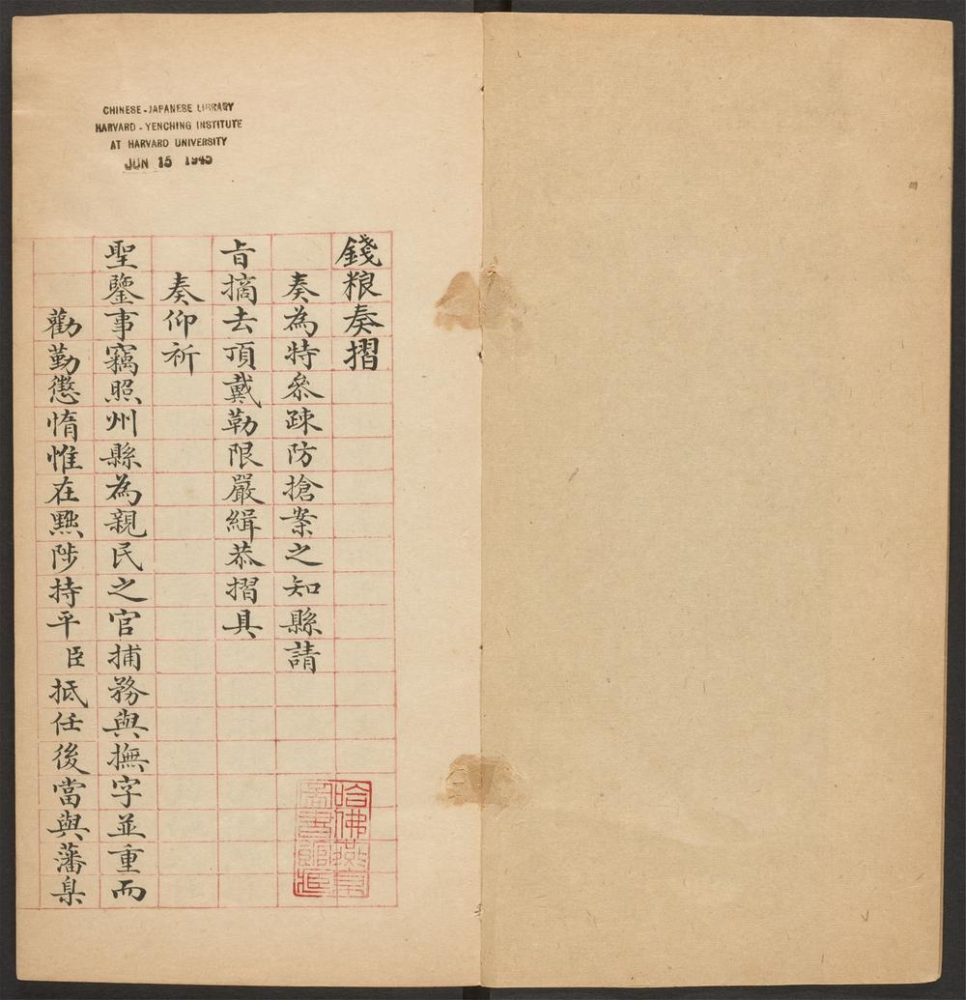 CHINESE-JAPANESE LIBRARY
HARVARD-YENCHING INSTITUTE
AT HARVARD UNIVERSITY
JUN 15 1945
錢粮奏摺
奏為特叅疎防搶案之知縣請
旨摘去頂戴勒限嚴緝恭摺具
奏仰祈
聖鑒事竊照州縣為親民之官捕務與撫字並重而
勸勤懲惰惟在黜陟持平臣抵任後當與藩臬
哈佛燕京
圖書館藏